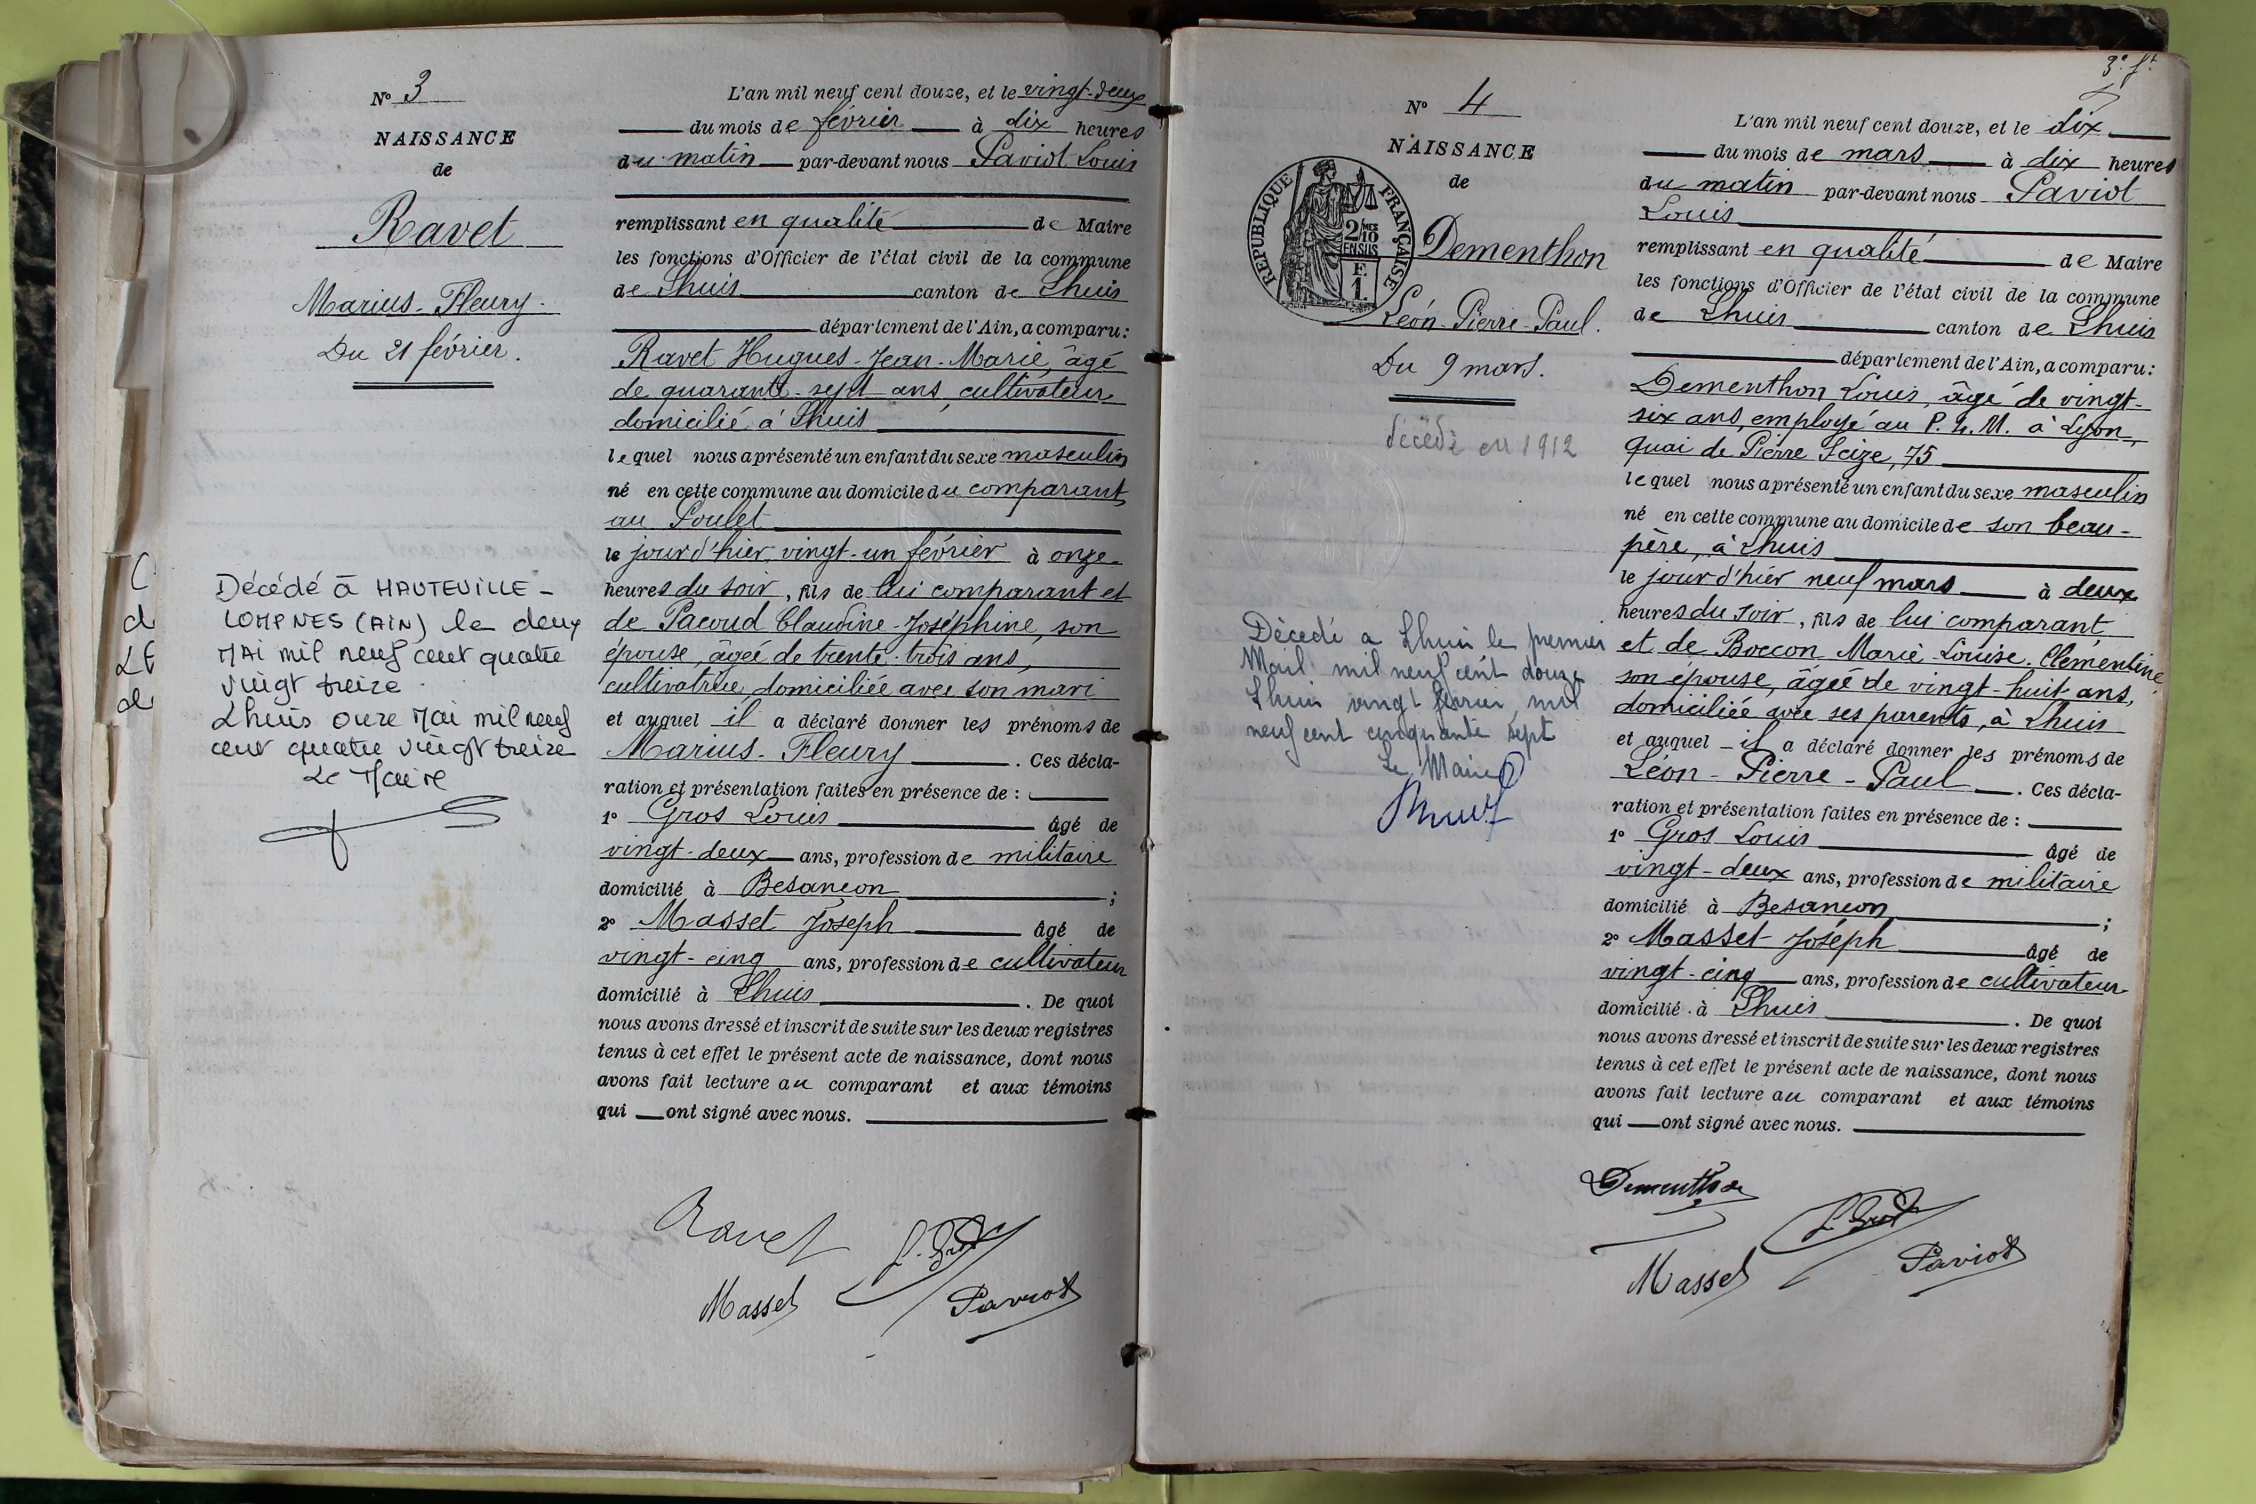 N° 3
NAISSANCE
de
Ravet
Marius-Fleury.
Du 21 février.
Décédé à HAUTEVILLE-
LOMPNES (AIN) le deux
MAI mil neuf cent quatre
vingt treize.
Lhuis onze Mai mil neuf
cent quatre vingt treize
Le Maire
L'an mil neuf cent douze, et le vingt-deux
du mois de février à dix heures
du matin par-devant nous Paviot Louis
remplissant en qualité de Maire
les fonctions d'Officier de l'état civil de la commune
de Lhuis canton de Lhuis
département de l'Ain, a comparu:
Ravet Hugues-Jean-Marie, âgé
de quarante-sept ans, cultivateur
domicilié à Lhuis
lequel nous a présenté un enfant du sexe masculin
né en cette commune au domicile du comparant
au Poulet
le jour d'hier vingt-un février à onze
heures du soir, fils de lui comparant et
de Pacoud Claudine-Joséphine, son
épouse, âgée de trente-trois ans,
cultivatrice, domiciliée avec son mari
et auquel il a déclaré donner les prénoms de
Marius-Fleury. Ces décla-
ration et présentation faites en présence de :
1° Gros Louis âgé de
vingt-deux ans, profession de militaire
domicilié à Besançon ;
2° Masset Joseph âgé de
vingt-cinq ans, profession de cultivateur
domicilié à Lhuis. De quoi
nous avons dressé et inscrit de suite sur les deux registres
tenus à cet effet le présent acte de naissance, dont nous
avons fait lecture au comparant et aux témoins
qui ont signé avec nous.
Ravet L. Gros
Masset Paviot
3e ft
N° 4
NAISSANCE
de
RÉPUBLIQUE FRANÇAISE
2/10 MES
EN SUS
F.
1.
Dementhon
Léon-Pierre-Paul.
Du 9 mars.
décédé en 1912
Décédé à Lhuis le premier
mil neuf cent douze
Lhuis vingt février mil
neuf cent cinquante sept
Le Maire
L'an mil neuf cent douze, et le dix
du mois de mars à dix heures
du matin par-devant nous Paviot
Louis
remplissant en qualité de Maire
les fonctions d'Officier de l'état civil de la commune
de Lhuis canton de Lhuis
département de l'Ain, a comparu:
Dementhon Louis, âgé de vingt-
six ans, employé au P. L. M. à Lyon,
quai de Pierre Scize, 75
lequel nous a présenté un enfant du sexe masculin
né en cette commune au domicile de son beau-
père, à Lhuis
le jour d'hier neuf mars à deux
heures du soir, fils de lui comparant
et de Boccon Marie-Louise-Clémentine,
son épouse, âgée de vingt-huit ans,
domiciliée avec ses parents, à Lhuis
et auquel il a déclaré donner les prénoms de
Léon-Pierre-Paul. Ces décla-
ration et présentation faites en présence de :
1° Gros Louis âgé de
vingt-deux ans, profession de militaire
domicilié à Besançon ;
2° Masset Joseph âgé de
vingt-cinq ans, profession de cultivateur
domicilié à Lhuis. De quoi
nous avons dressé et inscrit de suite sur les deux registres
tenus à cet effet le présent acte de naissance, dont nous
avons fait lecture au comparant et aux témoins
qui ont signé avec nous.
Dementhon
L. Gros
Masset Paviot